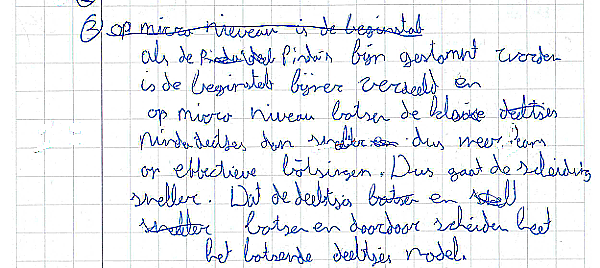 ② op micro niveau is de beginstof
als de Pinda's fijn gestampt worden
is de beginstof fijner verdeeld en
op micro niveau botsen de kleine deeltjes
pindadeeltjes dan sneller en dus meer kans
op effectieve botsingen. Dus gaat de scheiding
sneller. Dat de deeltjes botsen en
sneller botsen en daardoor scheiden heet
het botsende deeltjes model.